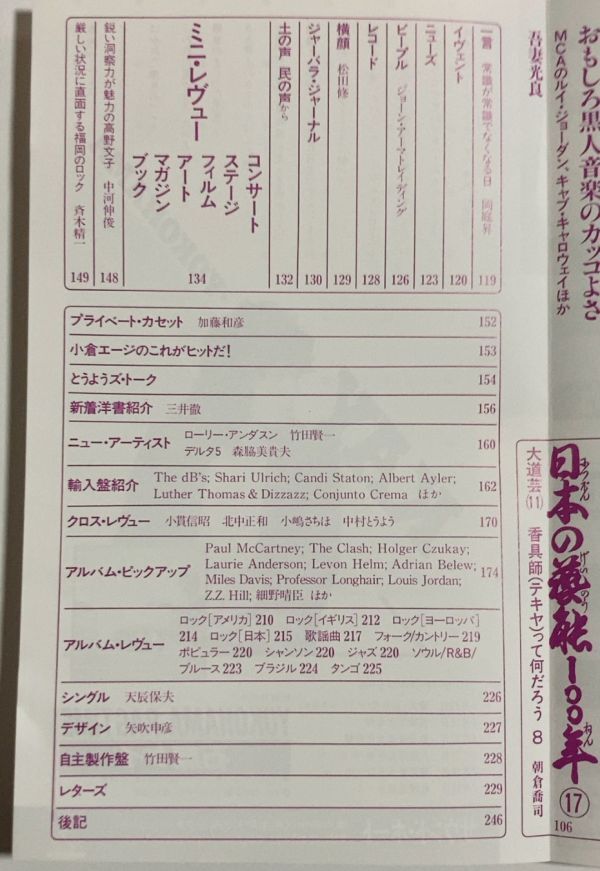 おもしろ黒人音楽のカッコよさ
MCAのルイ・ジョーダン、キャブ・キャロウェイほか
吾妻光良
一言 常識が常識でなくなる日 岡庭昇 119
イヴェント 120
ニューズ 123
ピープル ジョーン・アーマトレイディング 126
レコード 128
横顔 松田修 129
ジャーバラ・ジャーナル 130
土の声 民の声から 132
ミニ・レヴュー
コンサート
ステージ
フィルム
アート
マガジン
ブック
134
鋭い洞察力が魅力の高野文子 中河伸俊 148
厳しい状況に直面する福岡のロック 斉木精一 149
プライベート・カセット 加藤和彦 152
小倉エージのこれがヒットだ! 153
とうようズ・トーク 154
新着洋書紹介 三井徹 156
ニュー・アーティスト ローリー・アンダスン 竹田賢一
デルタ5 森脇美貴夫 160
輸入盤紹介 The dB's; Shari Ulrich; Candi Staton; Albert Ayler;
Luther Thomas & Dizzazz; Conjunto Crema ほか 162
クロス・レヴュー 小貫信昭 北中正和 小嶋さちほ 中村とうよう 170
アルバム・ピックアップ Paul McCartney; The Clash; Holger Czukay;
Laurie Anderson; Levon Helm; Adrian Belew;
Miles Davis; Professor Longhair; Louis Jordan;
Z.Z. Hill; 細野晴臣 ほか 174
アルバム・レヴュー ロック[アメリカ] 210 ロック[イギリス] 212 ロック[ヨーロッパ]
214 ロック[日本] 215 歌謡曲 217 フォーク/カントリー 219
ポピュラー 220 シャンソン 220 ジャズ 220 ソウル/R&B/
ブルース 223 ブラジル 224 タンゴ 225
シングル 天辰保夫 226
デザイン 矢吹申彦 227
自主製作盤 竹田賢一 228
レターズ 229
後記 246
日本の藝能一〇〇年 ⑰
大道芸(11) 香具師(テキヤ)って何だろう 8 朝倉喬司
106